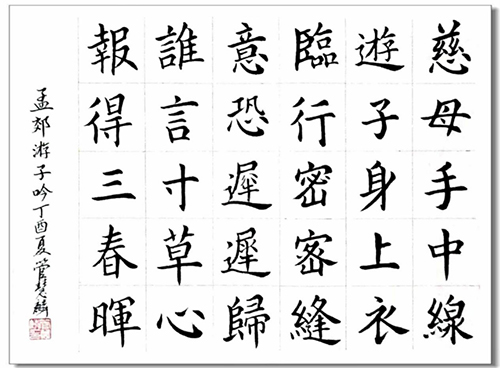 慈母手中線
遊子身上衣
臨行密密縫
意恐遲遲歸
誰言寸草心
報得三春暉
孟郊游子吟丁酉夏管